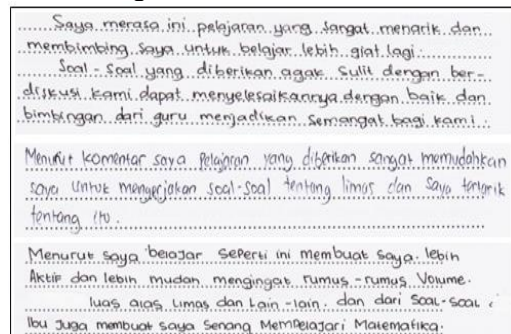 Saya merasa ini pelajaran yang sangat menarik dan
membimbing saya untuk belajar lebih giat lagi.
Soal-Soal yang diberikan agak sulit dengan ber-
diskusi kami dapat menyelesaikannya dengan baik dan
bimbingan dari guru menjadikan semangat bagi kami.
Menurut komentar saya Pelajaran yang diberikan sangat memudahkan
saya untuk mengerjakan soal-soal tentang limas dan saya tertarik
tentang itu.
Menurut saya belajar seperti ini membuat saya lebih
Aktif dan lebih mudah mengingat rumus-rumus Volume.
luas alas Limas dan Lain-lain. dan dari Soal-Soal
Ibu Juga membuat saya Senang Mempelajari Matematika.